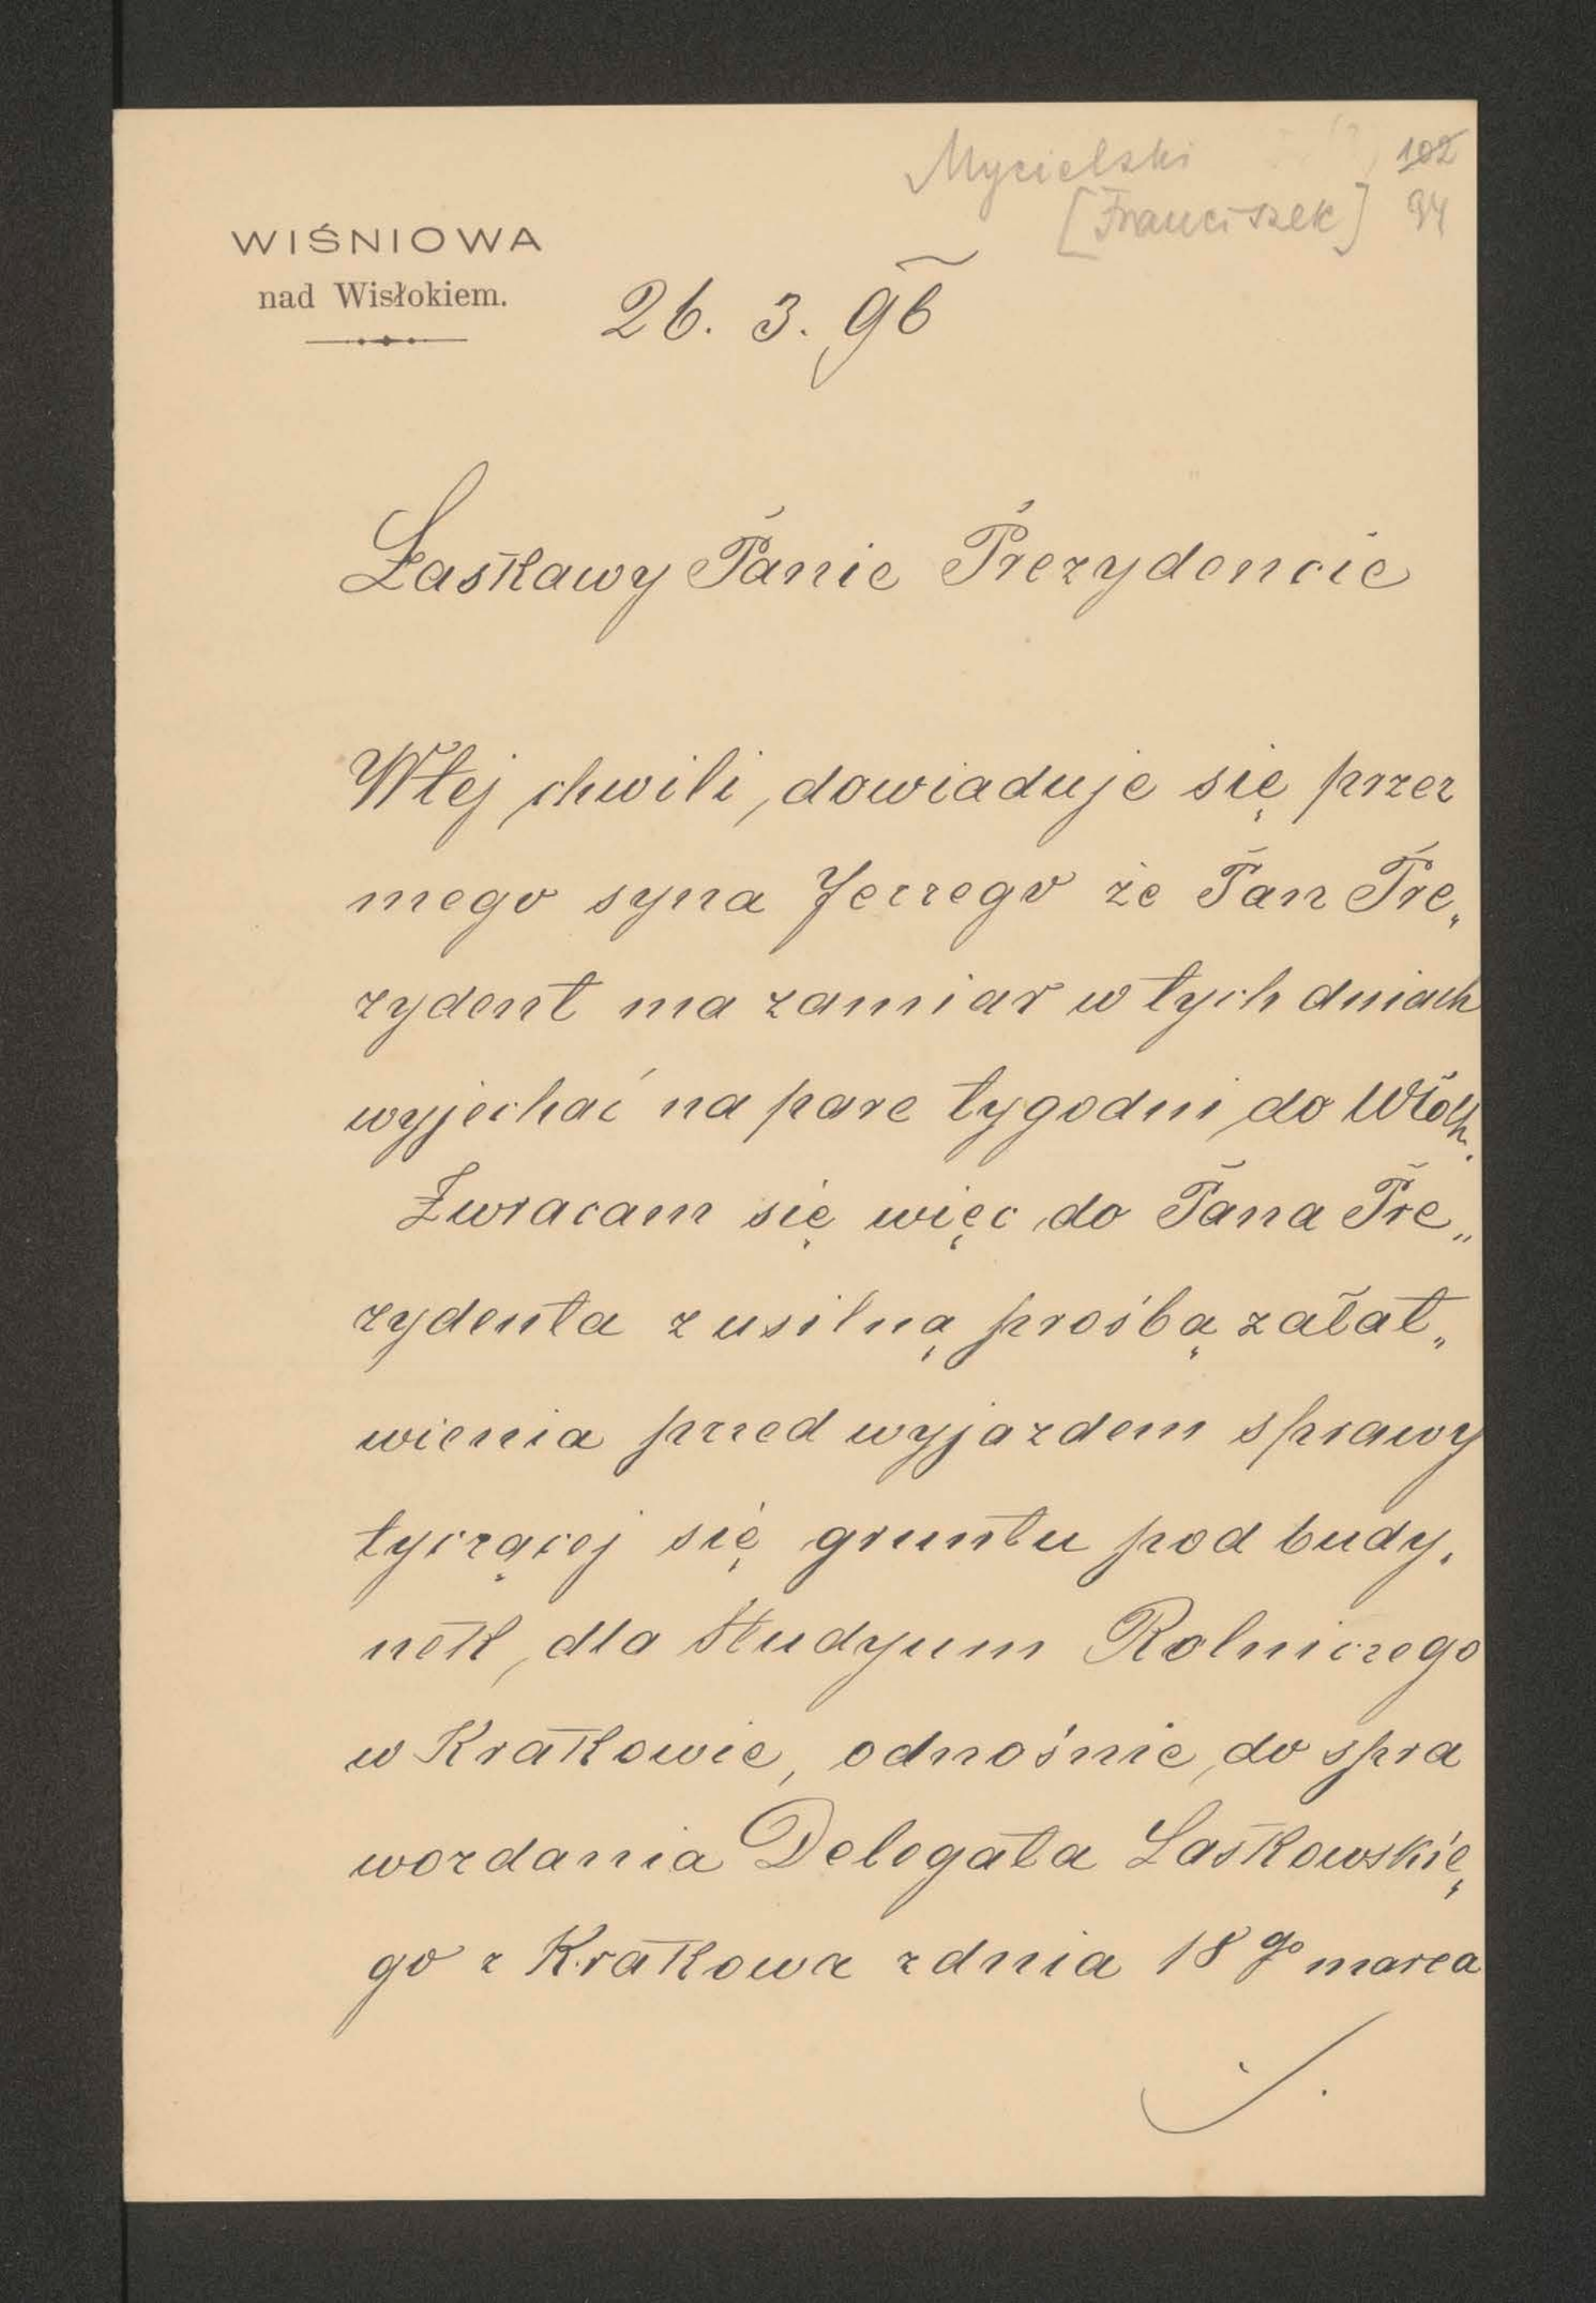 Mycielski
102
[Franciszek]
94
WIŚNIOWA
nad Wisłokiem.
26. 3. 96
Łaskawy Panie Prezydencie
W tej chwili, dowiaduje się przez
mego syna Jerzego że Pan Pre„
zydent ma zamiar w tych dniach
wyjechać na pare tygodni do Włoch.
Zwracam się więc do Pana Pre„
zydenta z usilną prośbą załat„
wienia przed wyjazdem sprawy
tyczącej się gruntu pod budy„
nek, dla Studyum Rolniczego
w Krakowie, odnośnie do spra
wozdania Delegata Laskowskie„
go z Krakowa z dnia 18go marca